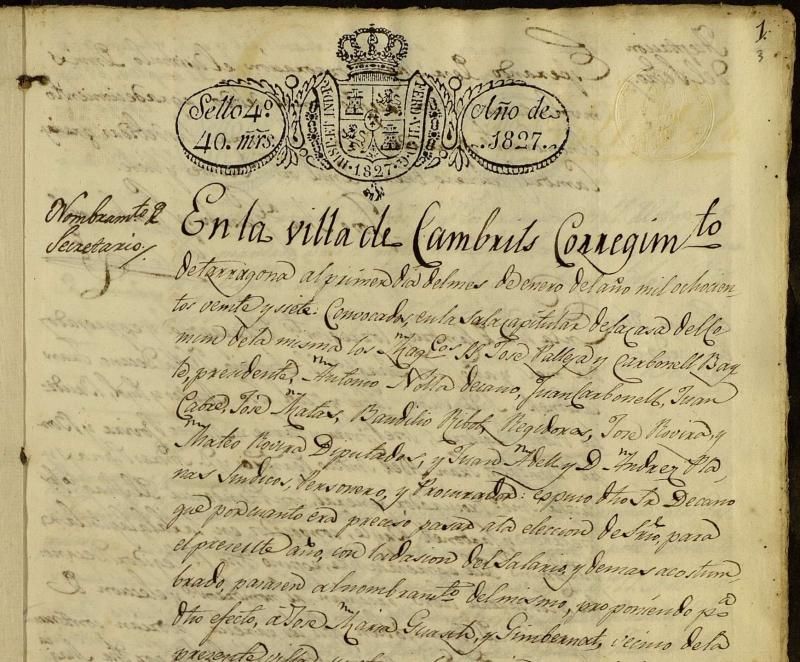 1.
3
Sello 4º
40. mrs.
HISP. ET IND. R.
FERD. VII. D. G.
.1827.
Año de
.1827.
Nombramto. de
Secretario.
En la villa de Cambrils Corregimto
de tarragona al primer dia del mes de enero del año mil ochocien-
tos veinte y siete: Convocados, en la sala capitular de la casa del Co-
mun de la misma los Magcos SS. Jose Vallesa y Carbonell Bay-
le, presidente, Antonio Nolla decano, Juan Carbonell, Juan
Cabré, Jose Matas, Baudilio Ribot, Regidores, Jose Rovira, y
Mateo Rovira Diputados, y Juan Adell y D. Andrez Pla-
nas Sindicos, Personero, y Procurador: espuso dho Sr. Decano
que por cuanto era preciso pasar a la eleccion de Srio, para
el presente año, con la dasion del Salario, y demas acostum-
brado, pasasen al nombramto del mismo, proponiendo pa
dho efecto, à Jose Maria Guasch, y Gimbernat, vecino de la
presente villa